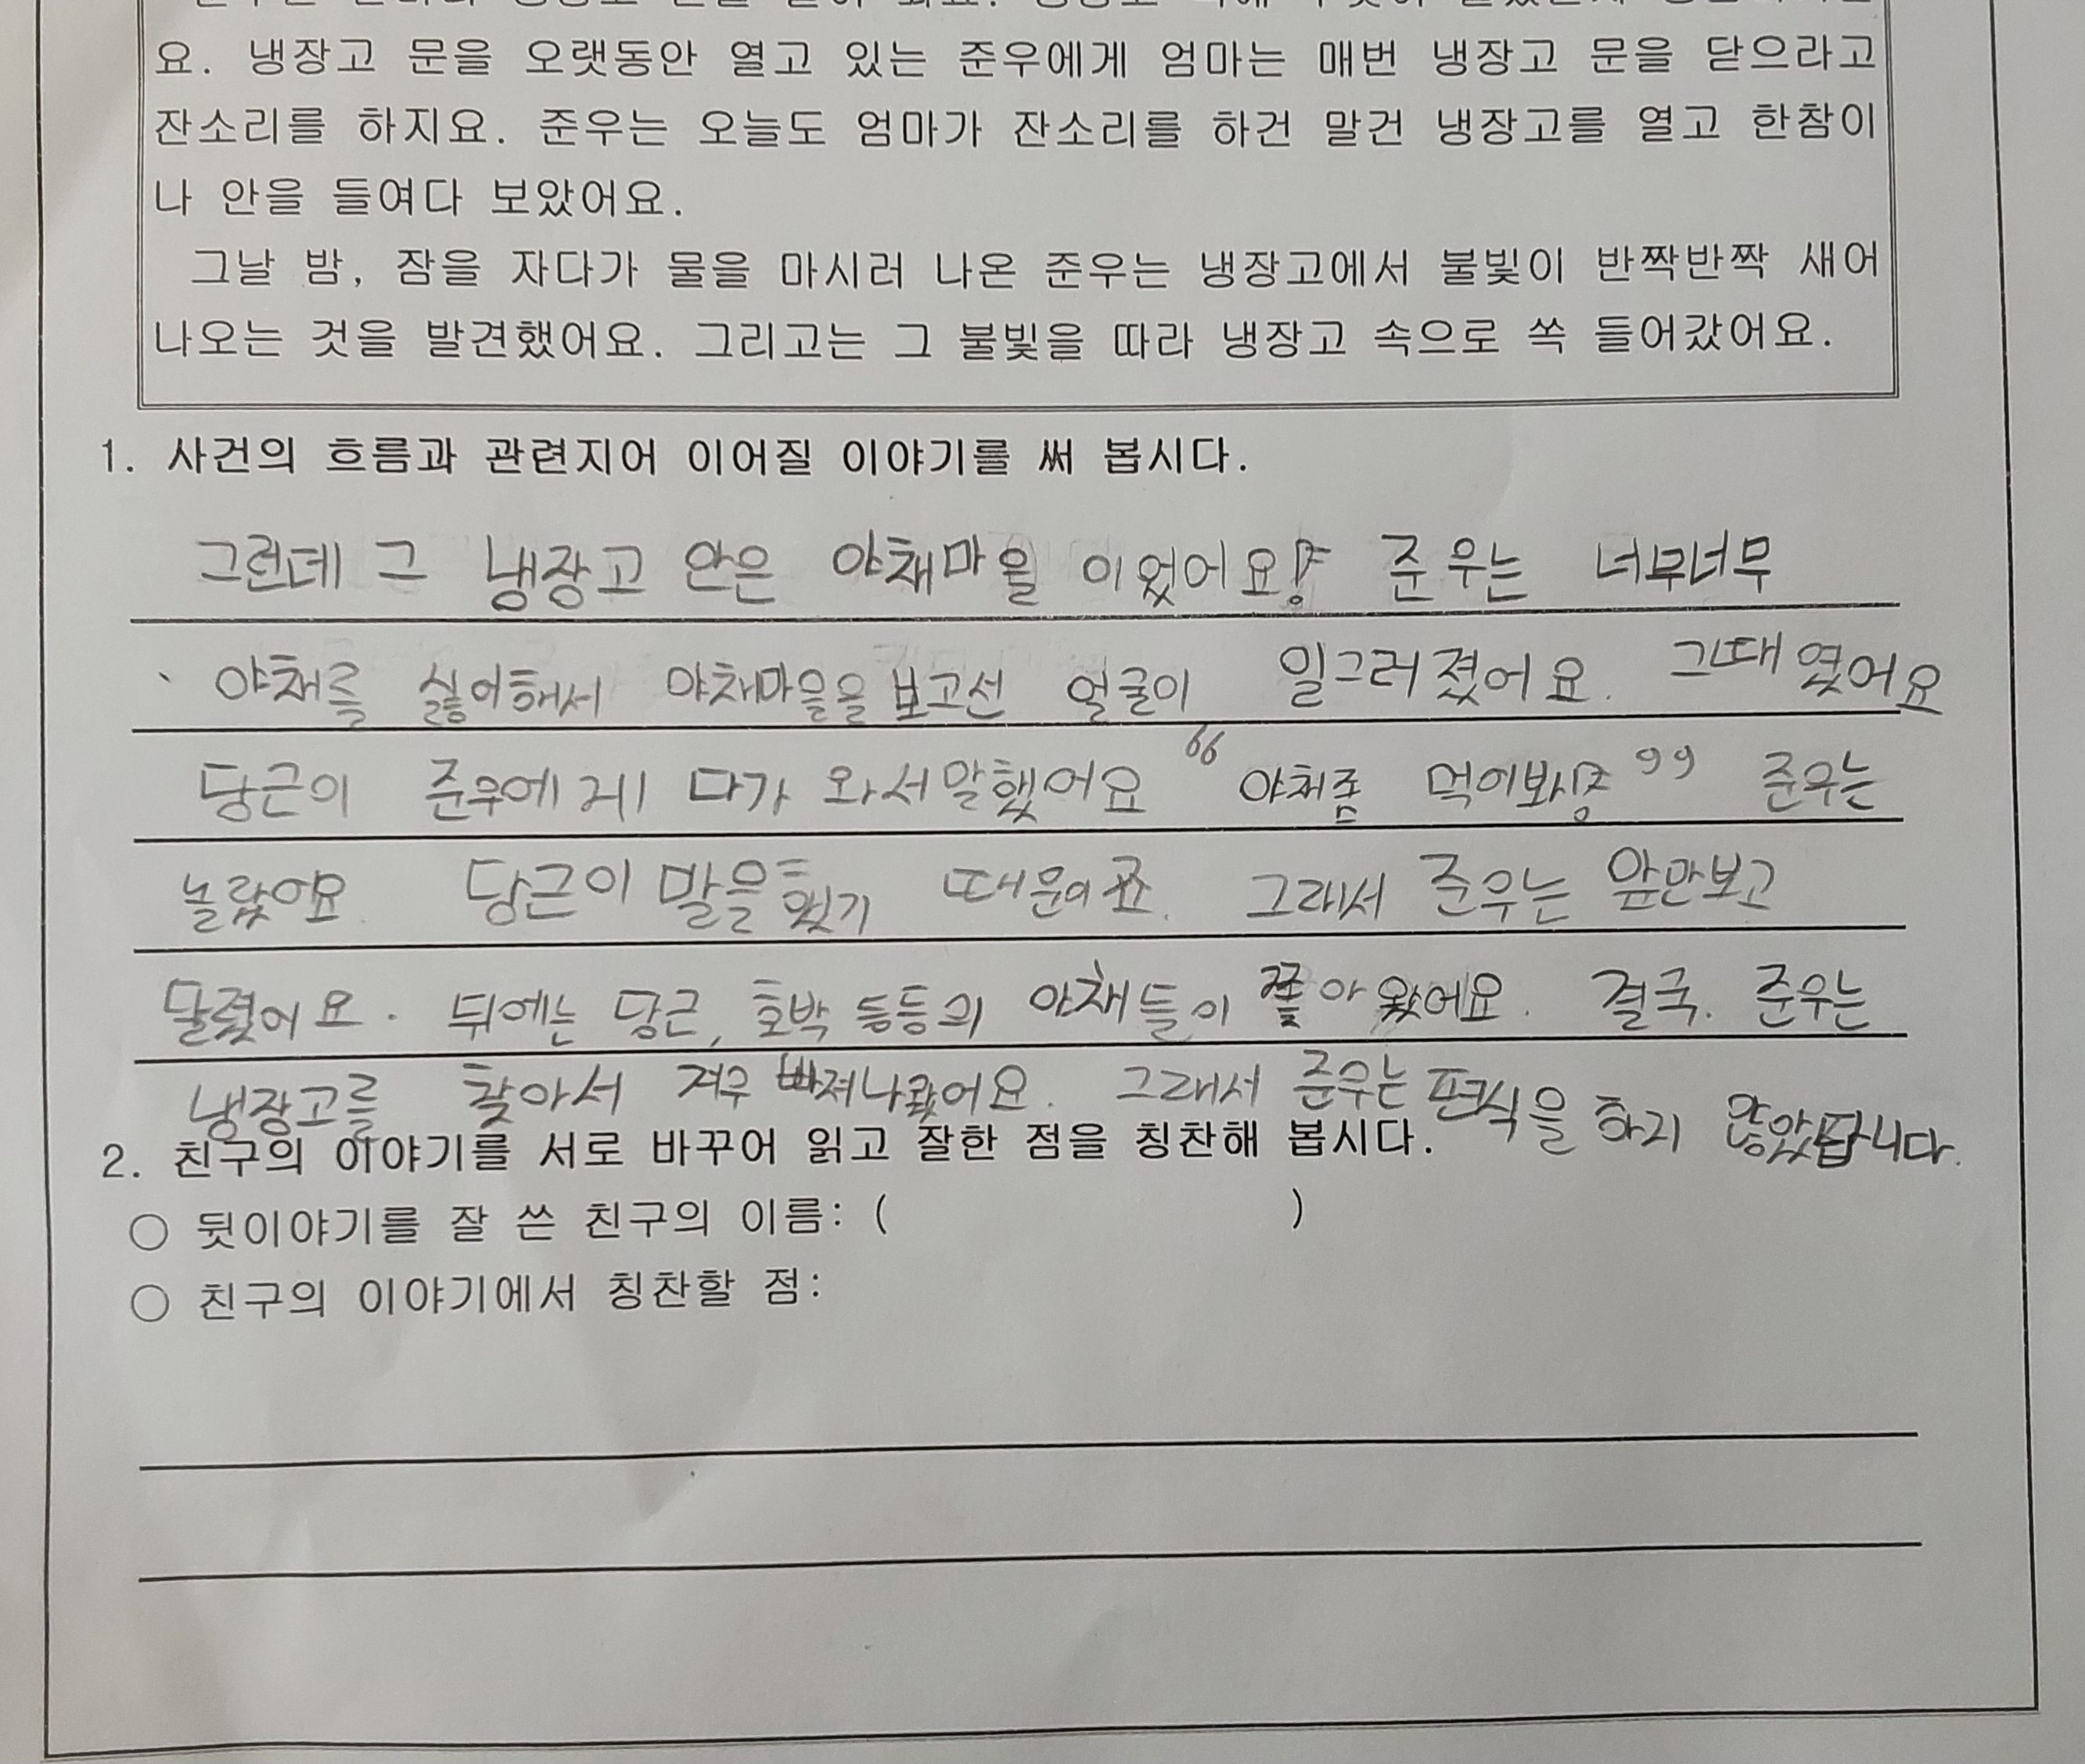 요. 냉장고 문을 오랫동안 열고 있는 준우에게 엄마는 매번 냉장고 문을 닫으라고
잔소리를 하지요. 준우는 오늘도 엄마가 잔소리를 하건 말건 냉장고를 열고 한참이
나 안을 들여다 보았어요.
그날 밤, 잠을 자다가 물을 마시러 나온 준우는 냉장고에서 불빛이 반짝반짝 새어
나오는 것을 발견했어요. 그리고는 그 불빛을 따라 냉장고 속으로 쏙 들어갔어요.
1. 사건의 흐름과 관련지어 이어질 이야기를 써 봅시다.
그런데 그 냉장고 안은 야채마을 이었어요 준우는 너무너무
야채를 싫어해서 야채마을을 보고선 얼굴이 일그러졌어요. 그때였어요
당근이 준우에게 다가 와서말했어요 "야채좀 먹어봐" 준우는
놀랐어요. 당근이 말을했기 때문이죠. 그래서 준우는 앞만보고
달렸어요. 뒤에는 당근, 호박 등등의 야채들이 쫓아 왔어요. 결국. 준우는
냉장고를 찾아서 겨우 빠져나왔어요. 그래서 준우는 편식을 하지 않았답니다.
2. 친구의 이야기를 서로 바꾸어 읽고 잘한 점을 칭찬해 봅시다.
○ 뒷이야기를 잘 쓴 친구의 이름: ( )
○ 친구의 이야기에서 칭찬할 점: